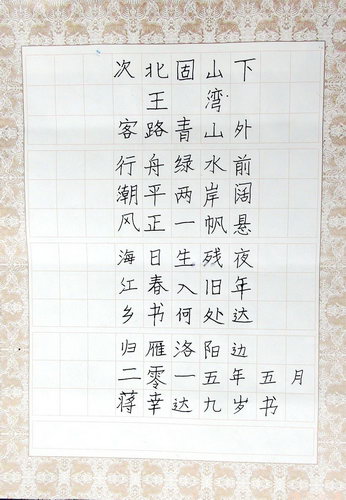 次北固山下
王 湾
客路青山外
行舟绿水前
潮平两岸阔
风正一帆悬
海日生残夜
江春入旧年
乡书何处达
归雁洛阳边
二零一五年五月
蒋幸达九岁书